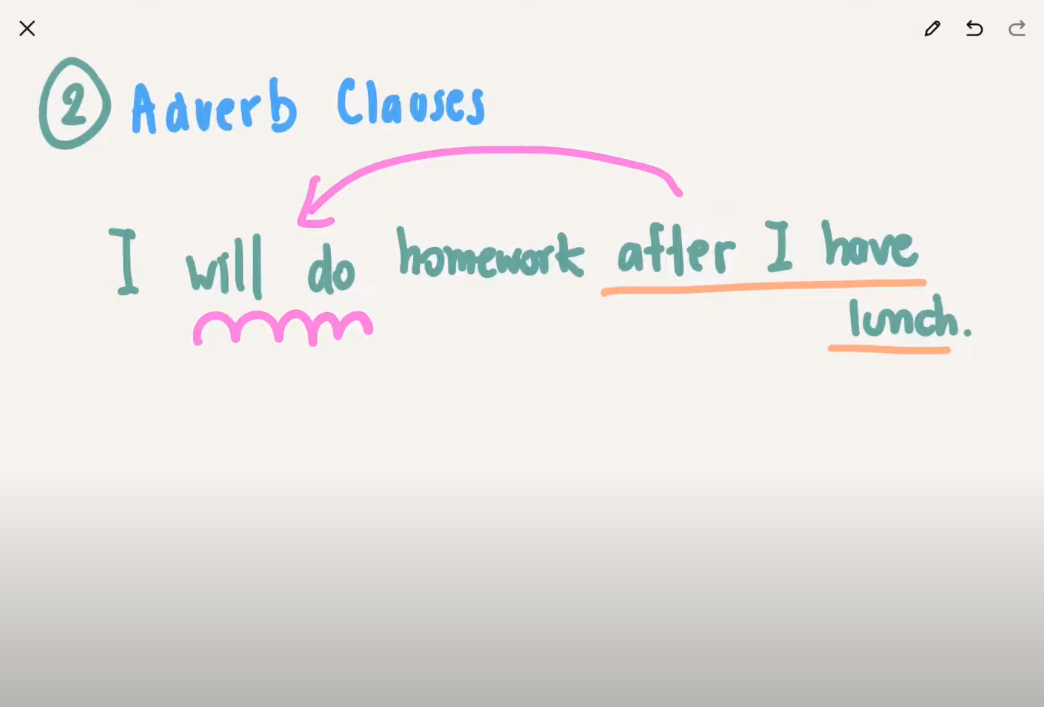 2 Adverb Clauses
I will do homework after I have
lunch.